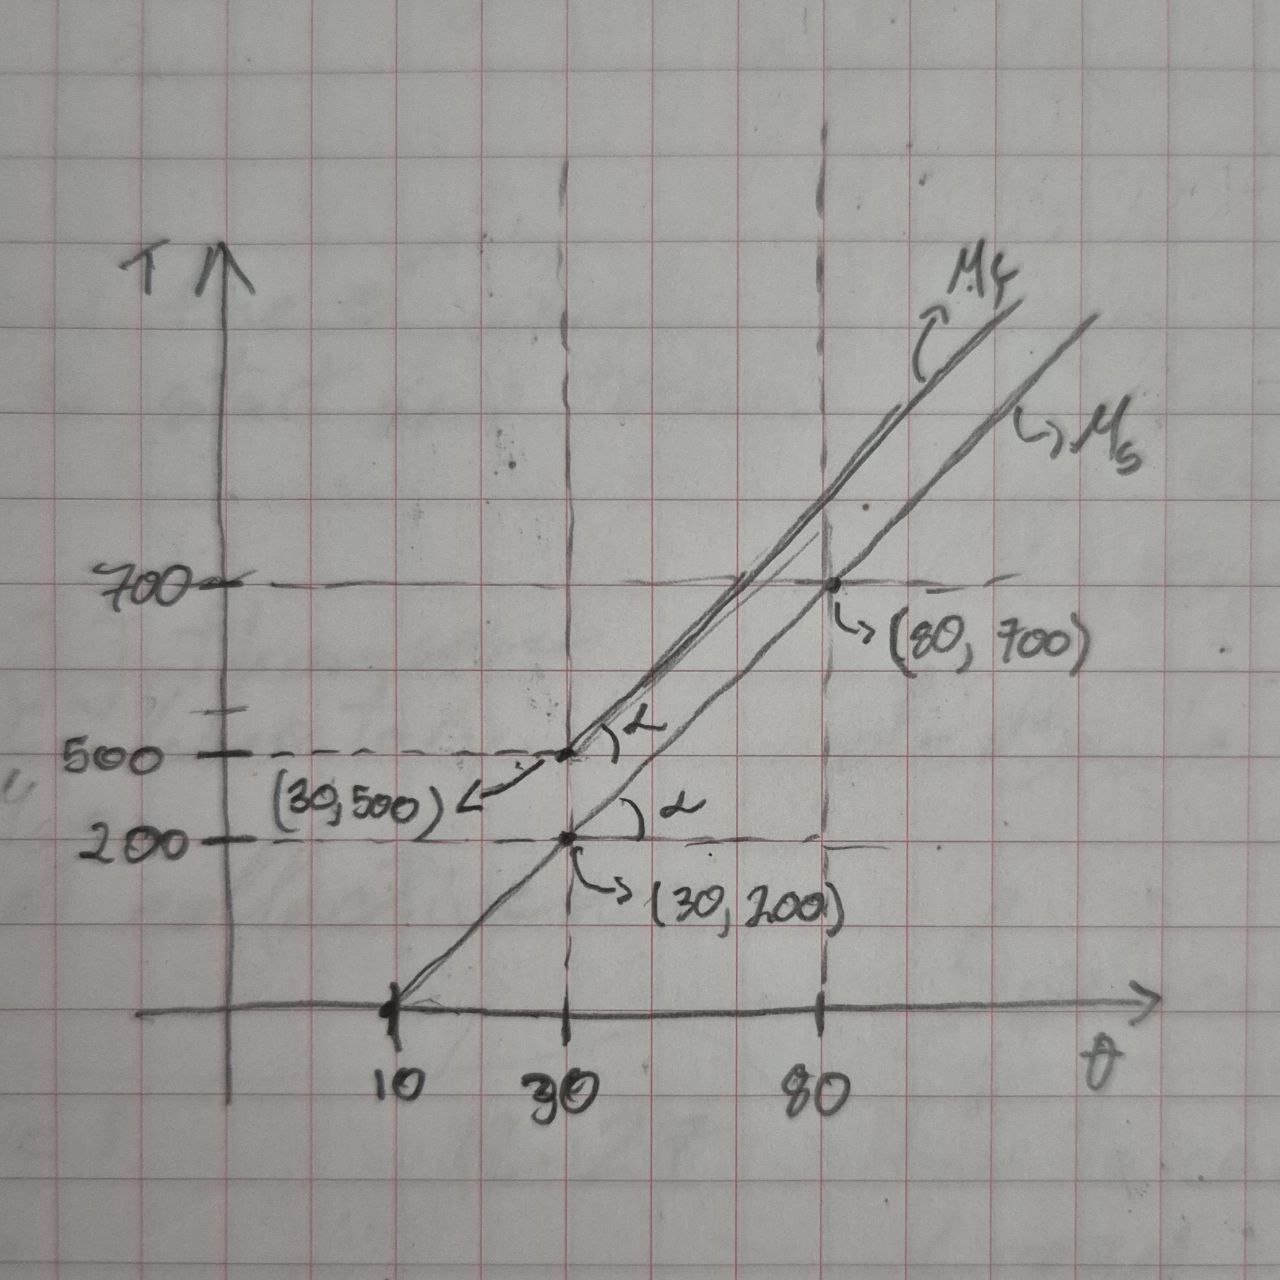 T
M_f
M_s
700
(80, 700)
α
500
(30,500)
α
200
(30, 200)
10
30
80
θ